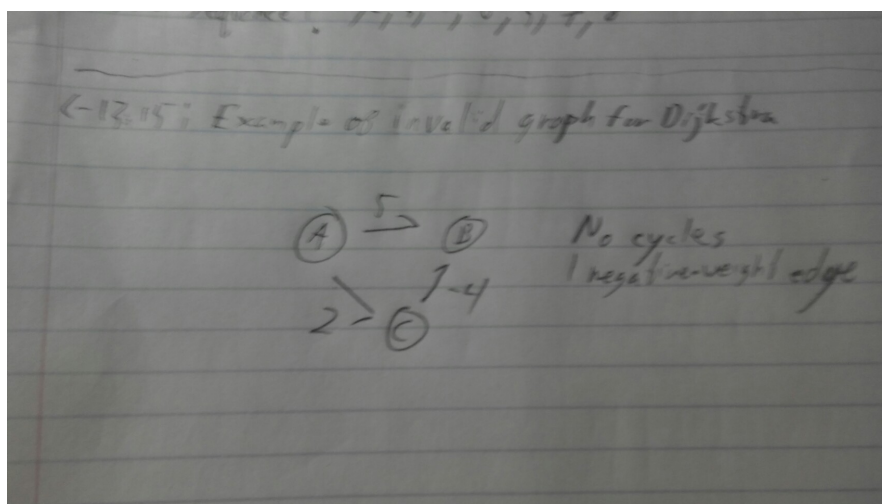 C-13.15: Example of invalid graph for Dijkstra
5
A B
No cycles
1 negative-weight edge
-4
2 C